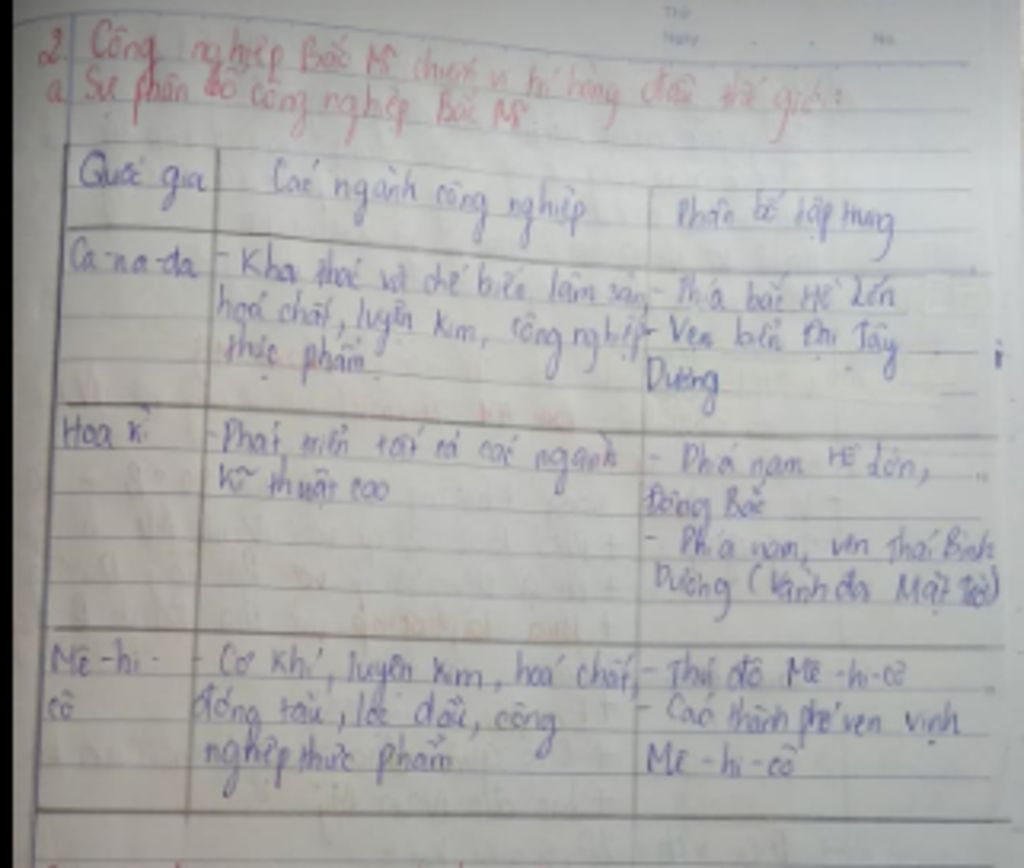 Thứ
Ngày . . No.
2. Công nghiệp Bắc Mĩ chiếm vị trí hàng đầu thế giới:
a. Sự phân bố công nghiệp Bắc Mĩ
Quốc gia
Các ngành công nghiệp
Phân bố tập trung
Ca-na-da
- Khai thác và chế biến lâm sản,
hoá chất, luyện kim, công nghiệp
thực phẩm
- Phía bắc Hồ Lớn
- Ven biển Đại Tây
Dương
Hoa kì
- Phát triển tất cả các ngành
kĩ thuật cao
- Phía nam Hồ lớn,
Đông Bắc
- Phía nam, ven Thái Bình
Dương (Vành đai Mặt trời)
Mê-hi-
cô
- Cơ khí, luyện kim, hoá chất,
đóng tàu, lọc dầu, công
nghiệp thực phẩm
- Thủ đô Mê-hi-cô
- Các thành phố ven vịnh
Mê-hi-cô